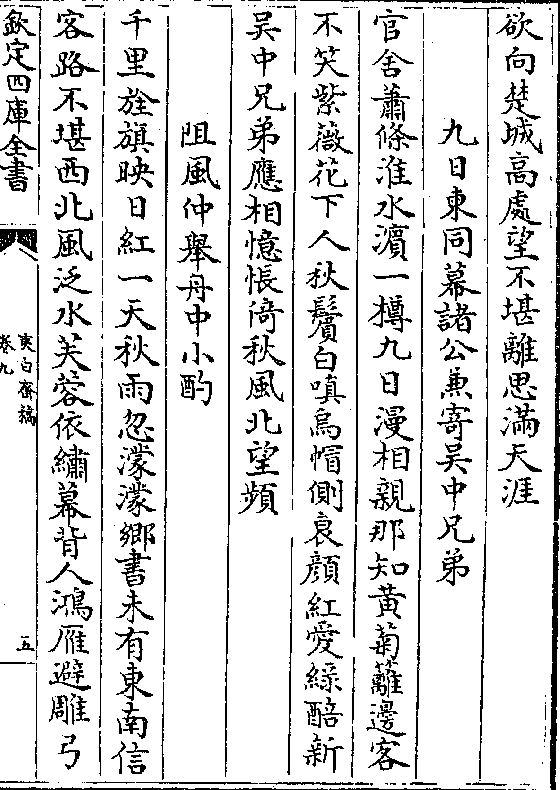 欲向楚城髙處望不堪離思滿天涯
九日東同幕諸公兼寄吴中兄弟
官舍蕭條淮水濵一樽九日漫相親那知黄菊籬邊客
不笑紫薇花下人秋鬢白嗔烏帽側衰顔紅愛緑醅新
吴中兄弟應相憶悵倚秋風北望頻
阻風仲舉舟中小酌
千里旌旗映日紅一天秋雨忽濛濛鄉書未有東南信
客路不堪西北風泛水芙蓉依繡幕背人鴻雁避雕弓
欽定四庫全書
夷白齋稿
卷九
五